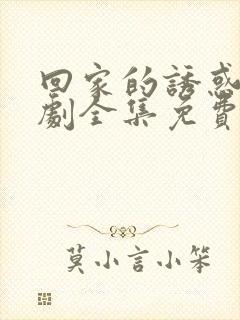 回家的誘惑
劇全集免費
莫小言小笨